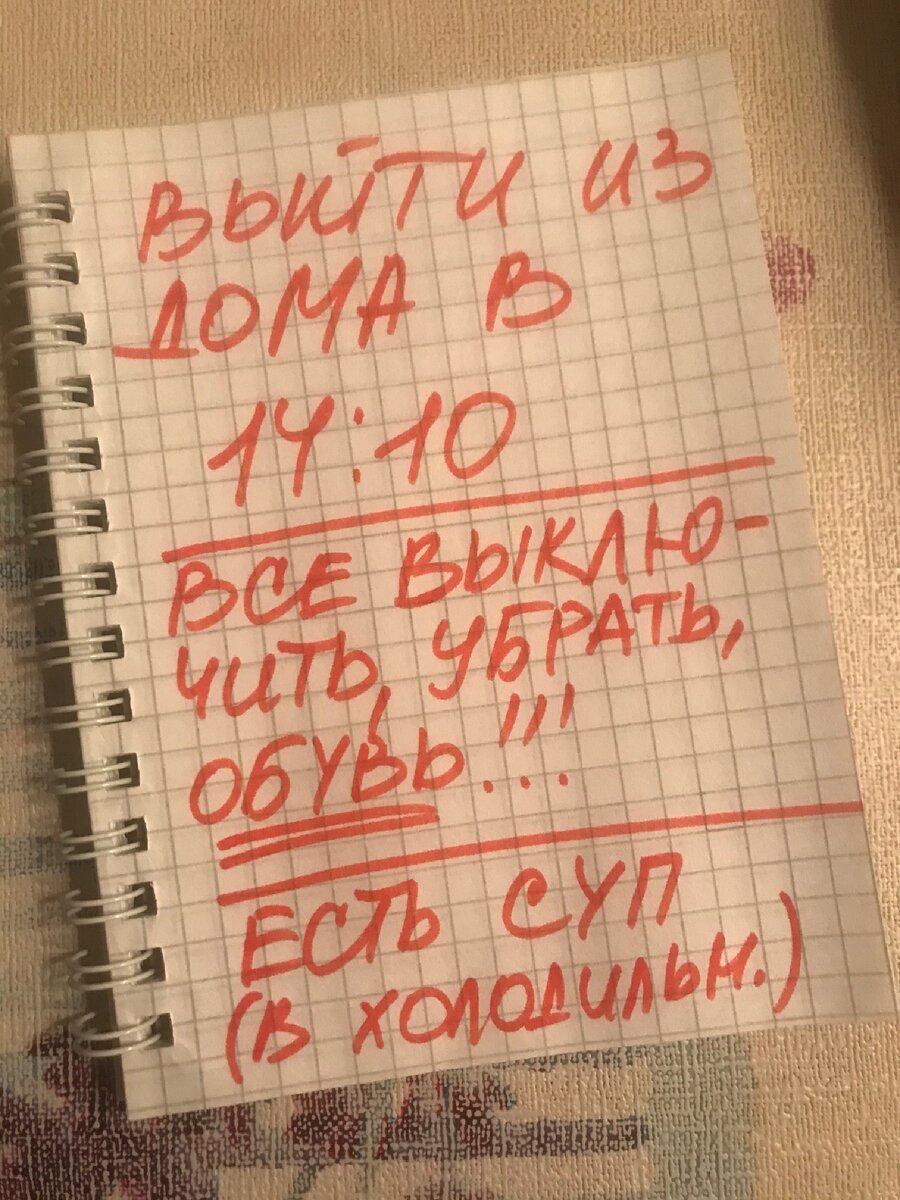 ВЫЙТИ ИЗ
ДОМА В
14:10
ВСЕ ВЫКЛЮ-
ЧИТЬ, УБРАТЬ,
ОБУВЬ!!!
ЕСТЬ СУП
(В ХОЛОДИЛЬН.)